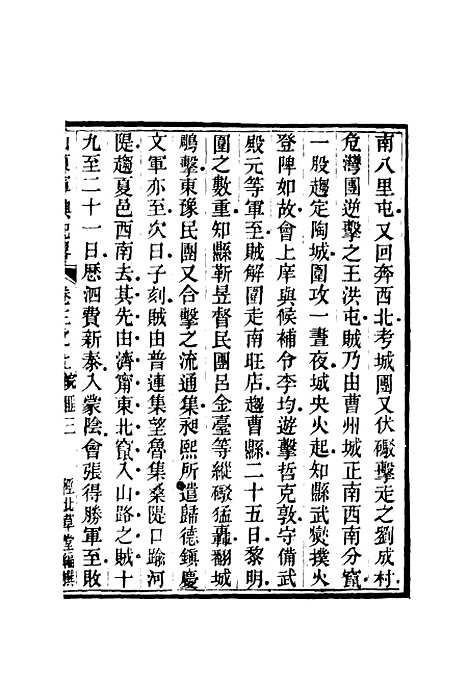 南八里屯又回奔西北考城團又伏礟擊走之劉成村
危灣團遊擊之王洪屯賊乃由曹州城正南西南分竄
一股趨定陶城圍攻一晝夜城央火起知縣武燮撲火
登陴如故會上庠與候補令李均遊擊哲克敦守備武
殿元等軍至賊解圍走南旺店趨曹縣二十五日黎明
圍之數重知縣靳昱督民團呂金臺等縱礟猛轟翻城
鵰擊東豫民團又合擊之流通集昶熙所遣歸德鎮慶
文軍亦至次日子刻賊由普連集望魯集桑隄口踰河
隄趨夏邑西南去其先由濟甯東北竄入山路之賊十
九至二十一日歷泗費新泰入蒙陰會張得勝軍至敗
山東軍興紀畧 卷三之上 竄匪三